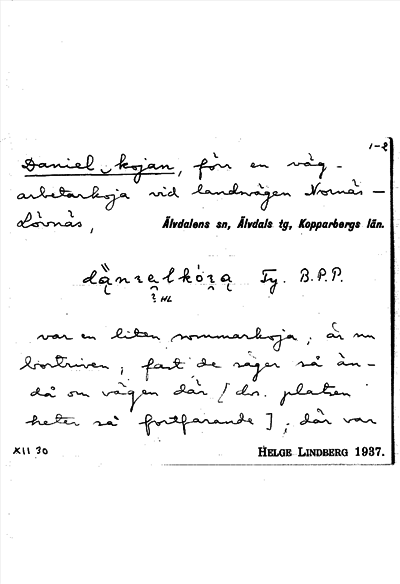 1-2
Daniel kojan, förr en väg-
arbetarkoja vid landsvägen Nornäs –
Lövnäs, Älvdalens sn, Älvdals tg, Kopparbergs län.
Ty. B.P.P.
? HL
var en liten sommarkoja, är nu
bortriven, fast de säger så än-
då om vägen där [dvs. platsen
heter så fortfarande], där var
XII 30 HELGE LINDBERG 1937.